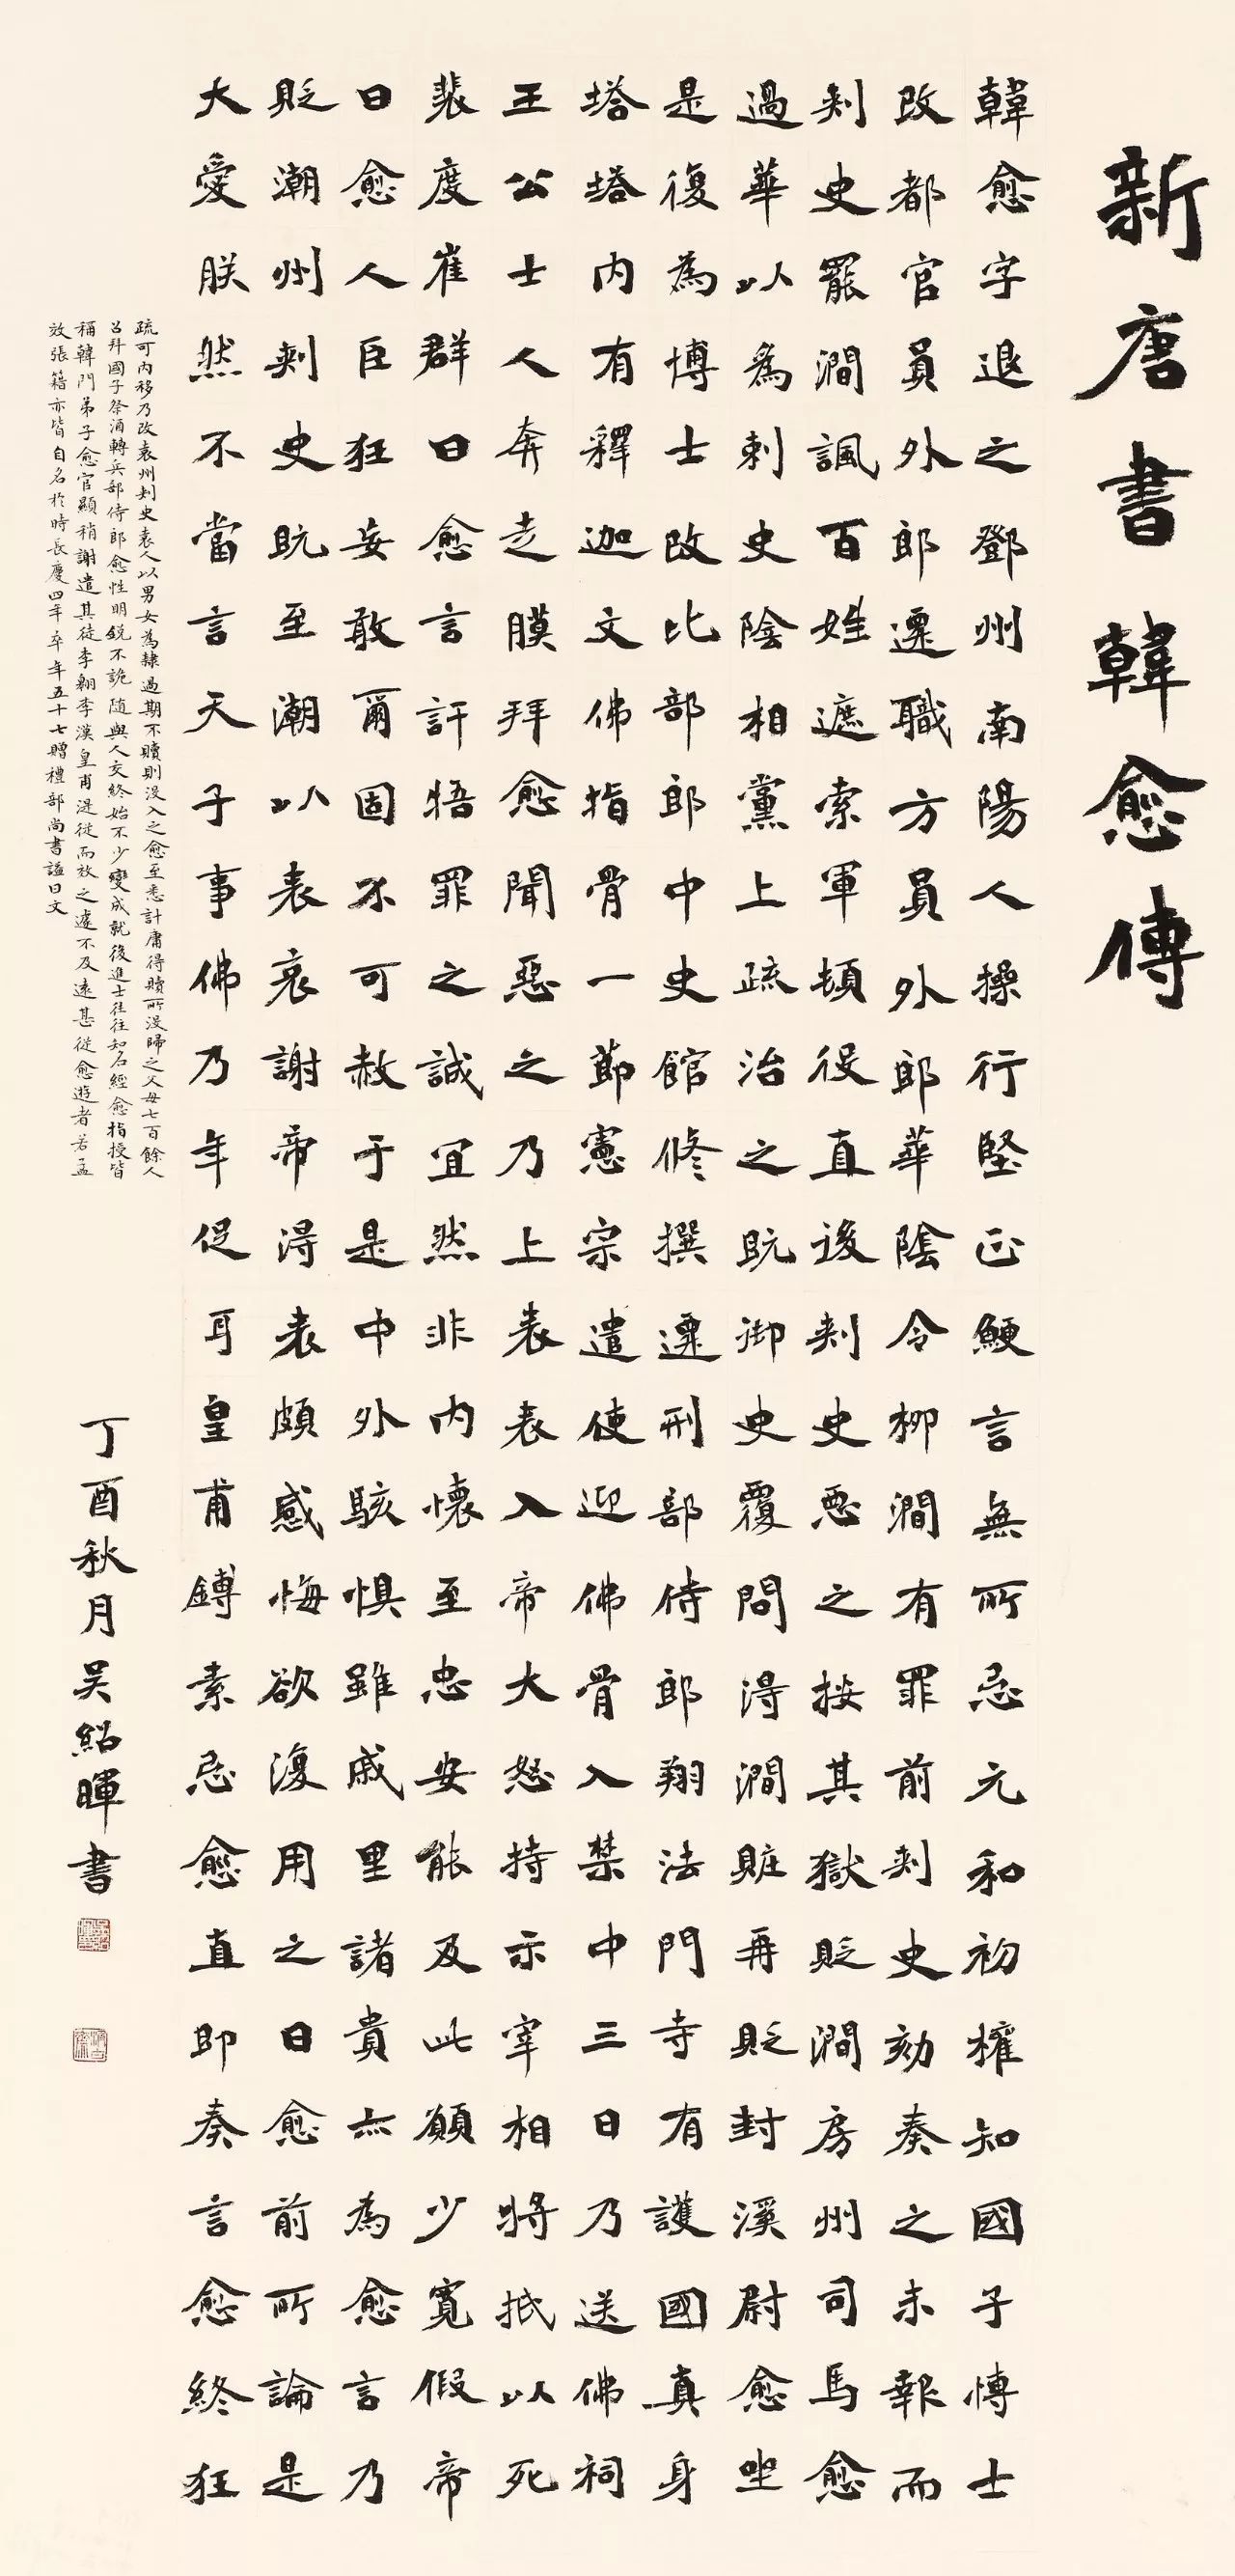 新唐書韓愈傳
韓愈字退之鄧州南陽人操行堅正鯁言無所忌元和初擢知國子博士
改都官員外郎遷職方員外郎華陰令柳澗有罪前刺史劾奏之未報而
刺史罷澗諷百姓遮索軍頓役直後刺史惡之按其獄貶澗房州司馬愈
過華以為刺史陰相黨上疏治之既御史覆問得澗贓再貶封溪尉愈坐
是復為博士改比部郎中史館修撰遷刑部侍郎翔法門寺有護國真身
塔塔內有釋迦文佛指骨一節憲宗遣使迎佛骨入禁中三日乃送佛祠
王公士人奔走膜拜愈聞惡之乃上表表入帝大怒持示宰相將抵以死
裴度崔群曰愈言訐牾罪之誠宜然非內懷至忠安能及此願少寬假帝
曰愈人臣狂妄敢爾固不可赦于是中外駭懼雖戚里諸貴亦為愈言乃
貶潮州刺史既至潮以表哀謝帝得表頗感悔欲復用之曰愈前所論是
大愛朕然不當言天子事佛乃年促耳皇甫鎛素忌愈直即奏言愈終狂
疏可內移乃改袁州刺史袁人以男女為隸過期不贖則沒入之愈至悉計庸得贖所沒歸之父母七百餘人
召拜國子祭酒轉兵部侍郎愈性明銳不詭隨與人交終始不少變成就後進士往往知名經愈指授皆
稱韓門弟子愈官顯稍謝遣其徒李翱李漢皇甫湜從而效之遽不及遠甚從愈遊者若孟
效張籍亦皆自名於時長慶四年卒年五十七贈禮部尚書謚曰文
丁酉秋月吴紹暉書